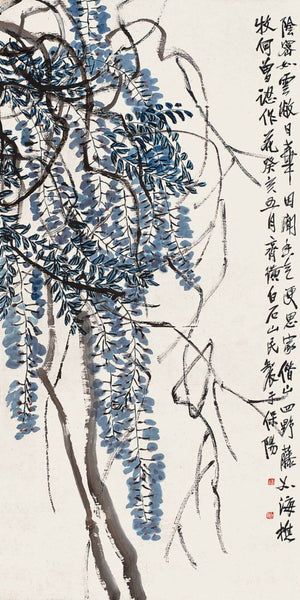 陰密如雲敝日華回闌香更思家借山四野藤如海樵
牧何曾認作花癸亥五月齊璜白石山民製于保陽